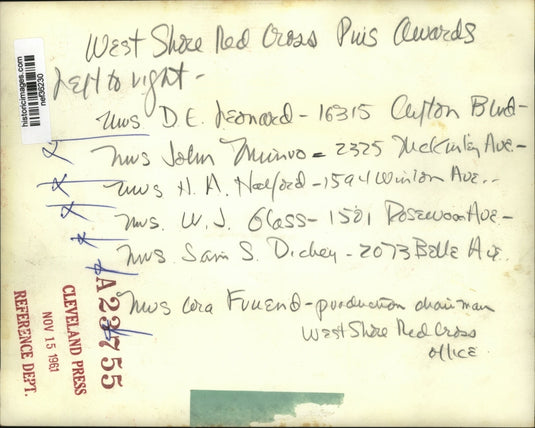 West Shore Red Cross Pins Awards
Left to right -
Mrs D.E. Leonard - 16315 Clifton Blvd -
Mrs John Munro - 2325 McKinley Ave. -
Mrs H. A. Halford - 1594 Winton Ave. -
Mrs. W. J. Glass - 1501 Rosewood Ave -
Mrs Sam S. Dickey - 2073 Belle Ave.
Mrs Cora Friend - production chairman
West Shore Red Cross
office
historicimages.com
nef36230
A23755
CLEVELAND PRESS
NOV 15 1961
REFERENCE DEPT.